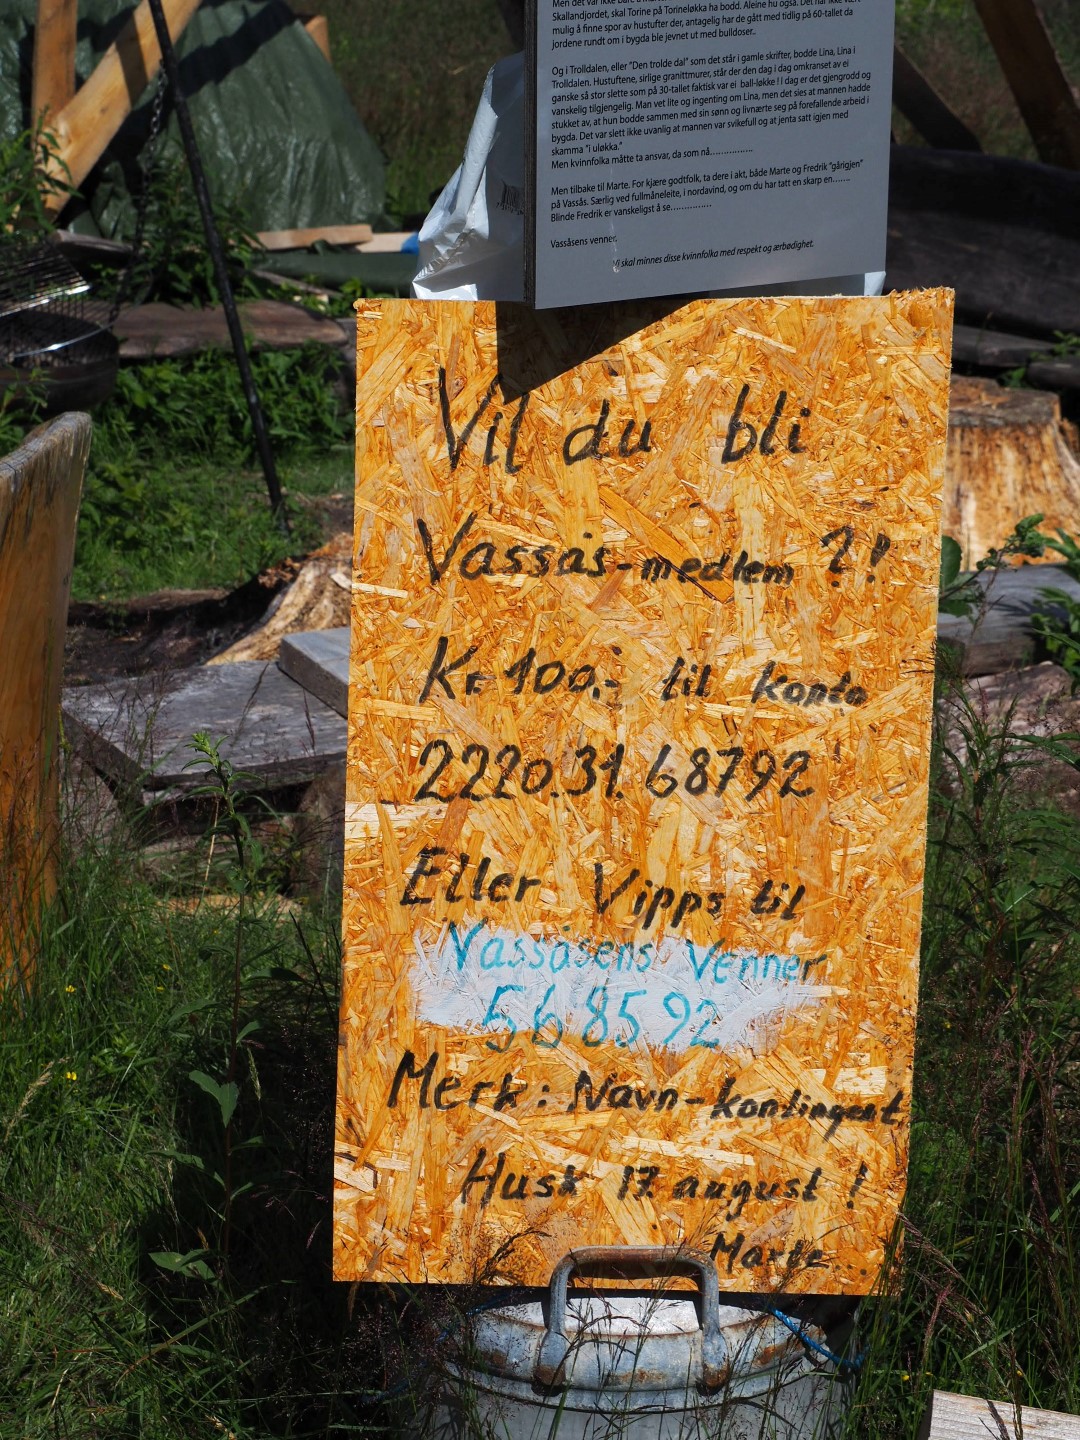 Skallandjordet, skal Torine på Torineløkka ha bodd. Aleine hu også. Det har ikke vært
mulig å finne spor av hustufter der, antagelig har de gått med tidlig på 60-tallet da
jordene rundt om i bygda ble jevnet ut med bulldoser..
Og i Trolldalen, eller "Den trolde dal" som det står i gamle skrifter, bodde Lina, Lina i
Trolldalen. Hustuftene, sirlige granittmurer, står der den dag i dag omkranset av ei
ganske så stor slette som på 30-tallet faktisk var ei ball-løkke ! I dag er det gjengrodd og
vanskelig tilgjengelig. Man vet lite og ingenting om Lina, men det sies at mannen hadde
stukket av, at hun bodde sammen med sin sønn og livnærte seg på forefallende arbeid i
bygda. Det var slett ikke uvanlig at mannen var svikefull og at jenta satt igjen med
skamma "i uløkka."
Men kvinnfolka måtte ta ansvar, da som nå……………
Men tilbake til Marte. For kjære godtfolk, ta dere i akt, både Marte og Fredrik "gårigjen"
på Vassås. Særlig ved fullmåneleite, i nordavind, og om du har tatt en skarp en…….
Blinde Fredrik er vanskeligst å se……………
Vassåsens venner.
Vi skal minnes disse kvinnfolka med respekt og ærbødighet.
Vil du bli
Vassås-medlem ?!
Kr 100,- til konto
2220.31.68792
Eller Vipps til
Vassåsens Venner
568592
Merk: Navn-kontingent
Husk 17. august !
Marte...